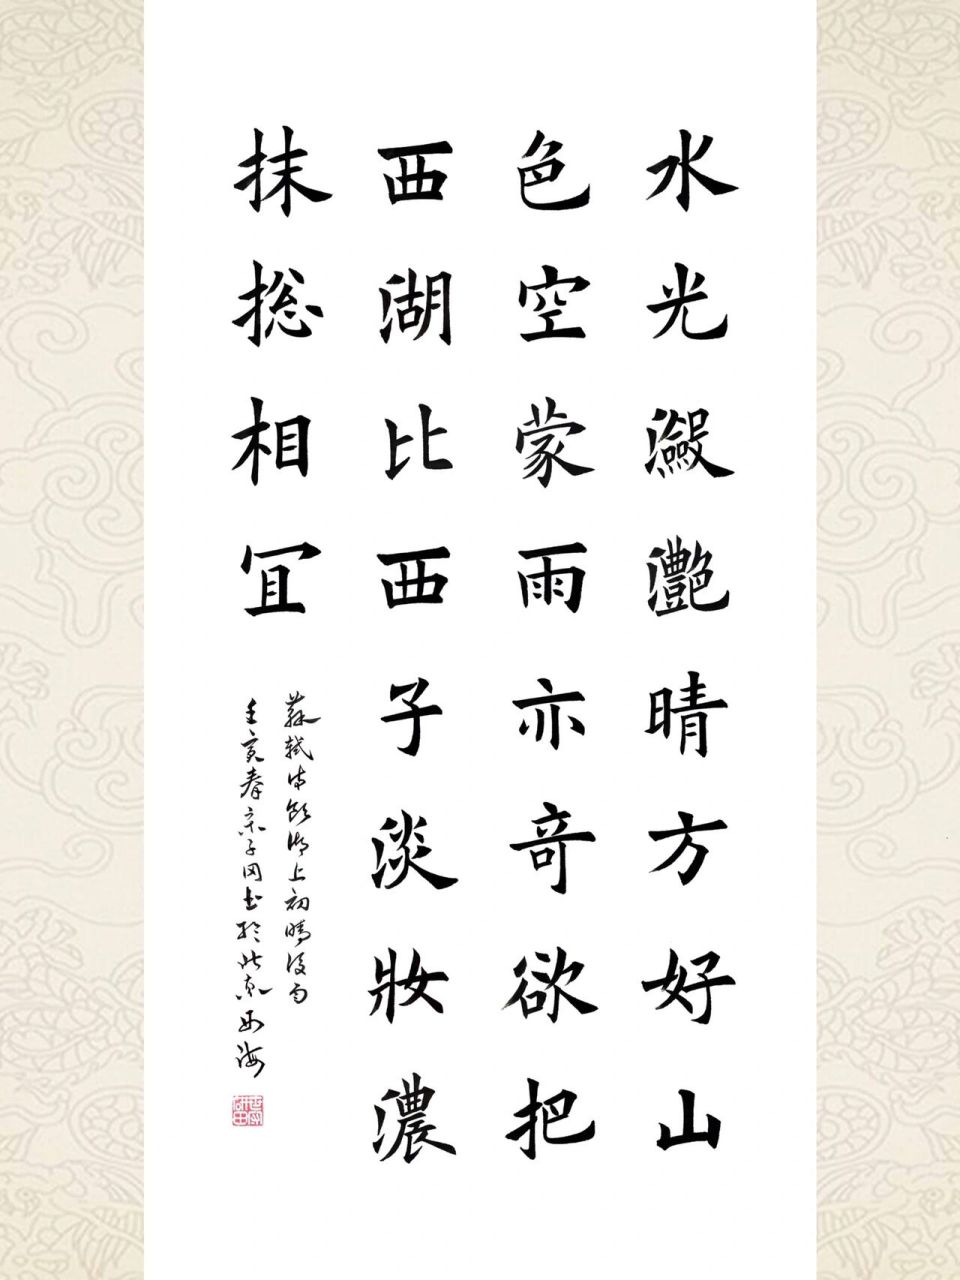 水光瀲灩晴方好山
色空蒙雨亦奇欲把
西湖比西子淡妝濃
抹捴相冝
蘇軾詩飲湖上初晴後雨
壬寅春宋子冈书於北京西海